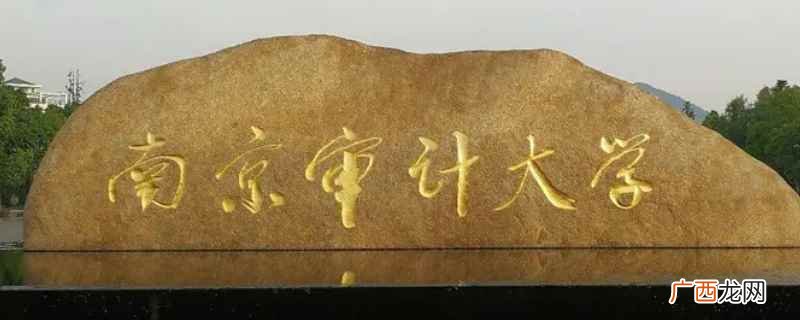 南京审计大学
广西龙网